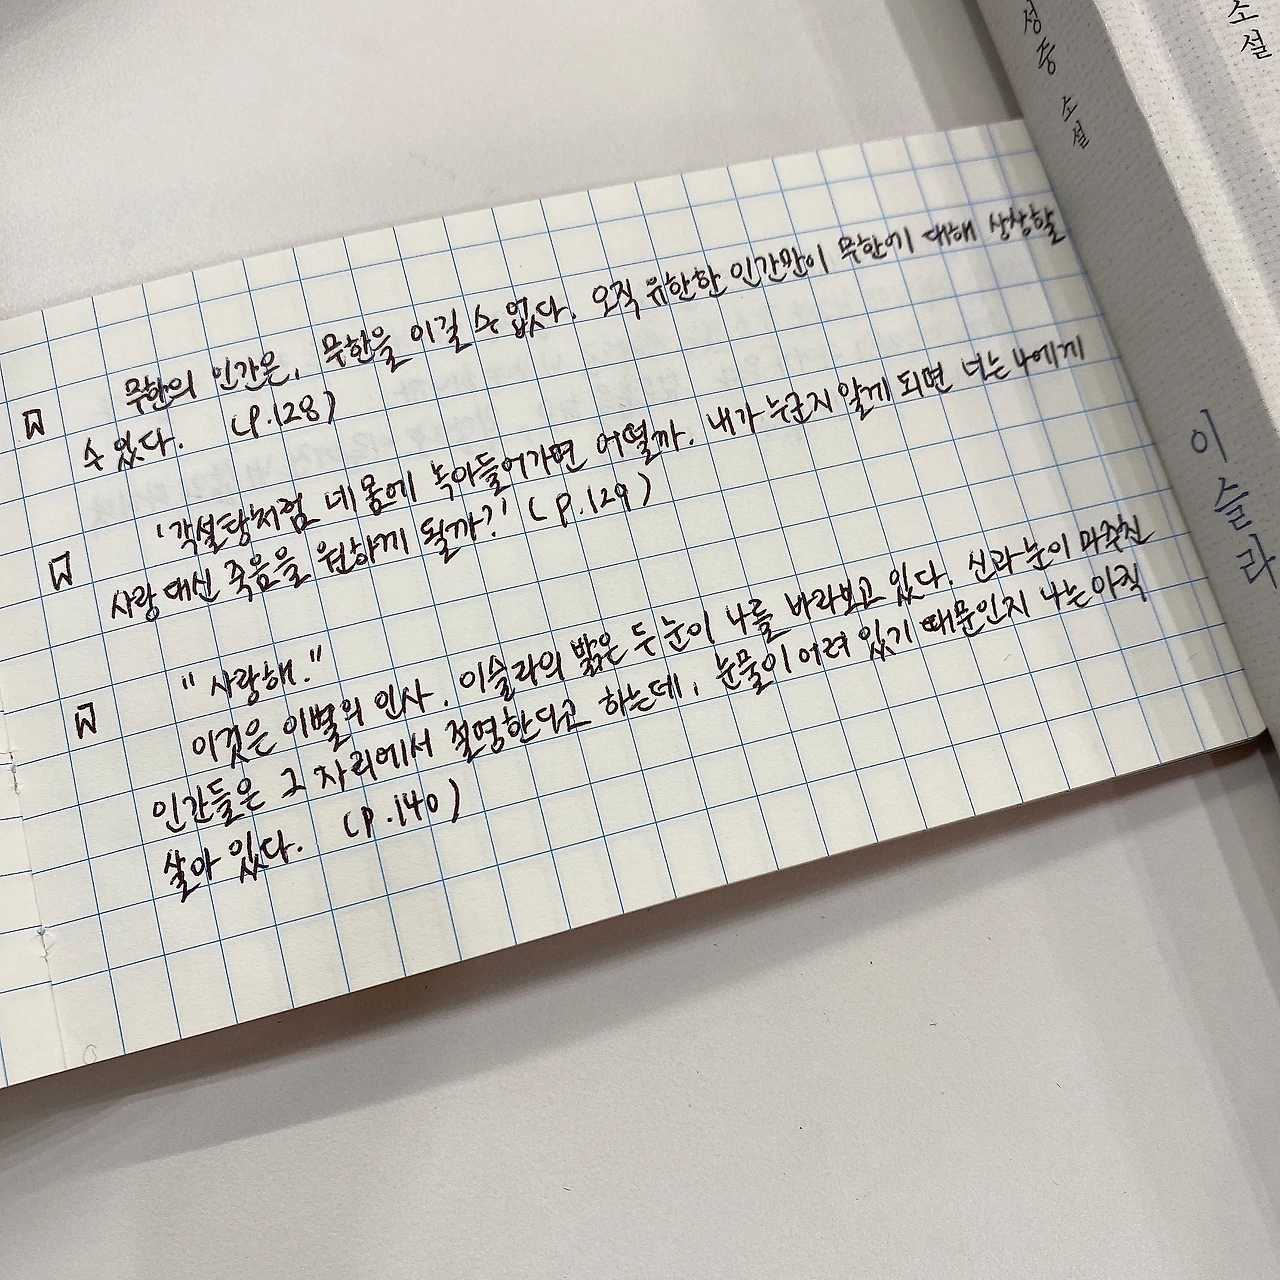 성중 소설
소설
이슬라
무한의 인간은, 무한을 이길 수 없다. 오직 유한한 인간만이 무한에 대해 상상할
수 있다. (P.128)
'각설탕처럼 네 몸에 녹아들어가면 어떨까. 내가 누군지 알게 되면 너는 나에게
사랑 대신 죽음을 원하게 될까?' (P.129)
"사랑해."
이것은 이별의 인사. 이슬라의 밝은 두 눈이 나를 바라보고 있다. 신과 눈이 마주친
인간들은 그 자리에서 절명한다고 하는데, 눈물이 어려 있기 때문인지 나는 아직
살아 있다. (P.140)